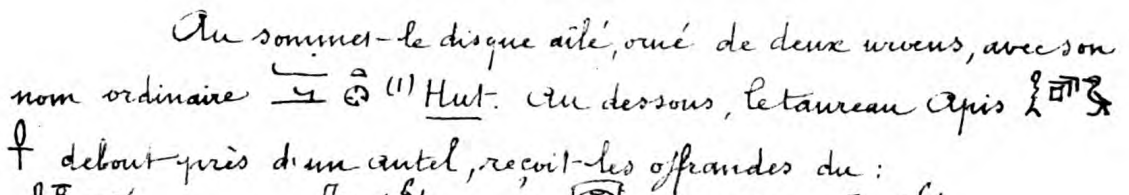 Au sommet le disque ailé, orné de deux uroeus, avec son
nom ordinaire (1) Hut. Au dessous, le taureau Apis
debout près d'un autel, reçoit les offrandes du :